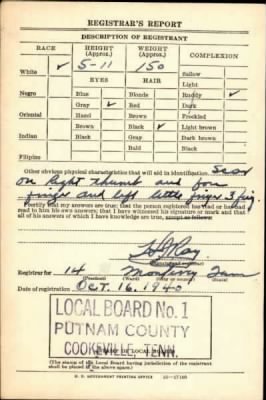 REGISTRAR'S REPORT
DESCRIPTION OF REGISTRANT
RACE HEIGHT (Approx.) WEIGHT (Approx.) COMPLEXION
White ✓ 5-11 150 Sallow
EYES HAIR Light
Negro Blue Blonde Ruddy ✓
Gray ✓ Red Dark
Oriental Hazel Brown Freckled
Brown Black ✓ Light brown
Indian Black Gray Dark brown
Bald Black
Filipino
Other obvious physical characteristics that will aid in identification. Scar
on Right thumb and fore
finger and left little finger
I certify that my answers are true; that the person registered has read or has had
read to him his own answers; that I have witnessed his signature or mark and that
all of his answers of which I have knowledge are true, except as follows:
Ray
Registrar for 14
(Precinct) (Ward) (City or county) (State)
Date of registration Oct. 16, 1940
LOCAL BOARD No. 1
PUTNAM COUNTY
COOKEVILLE, TENN.
(The stamp of the Local Board having jurisdiction of the registrant
shall be placed in the above space.)
U. S. GOVERNMENT PRINTING OFFICE 16-17105